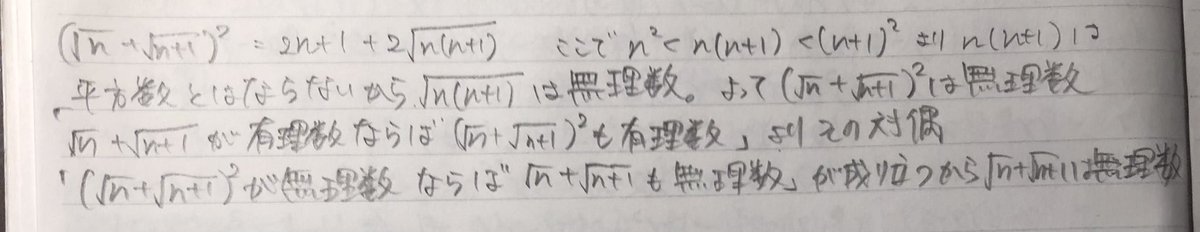 (√n + √n+1)² = 2n+1 + 2√n(n+1) ここで n² < n(n+1) < (n+1)² より n(n+1) は
平方数とはならないから √n(n+1) は無理数。よって (√n + √n+1)² は無理数
「√n + √n+1 が有理数ならば (√n + √n+1)² も有理数」よりその対偶
「(√n + √n+1)² が無理数ならば √n + √n+1 も無理数」が成り立つから √n + √n+1 は無理数